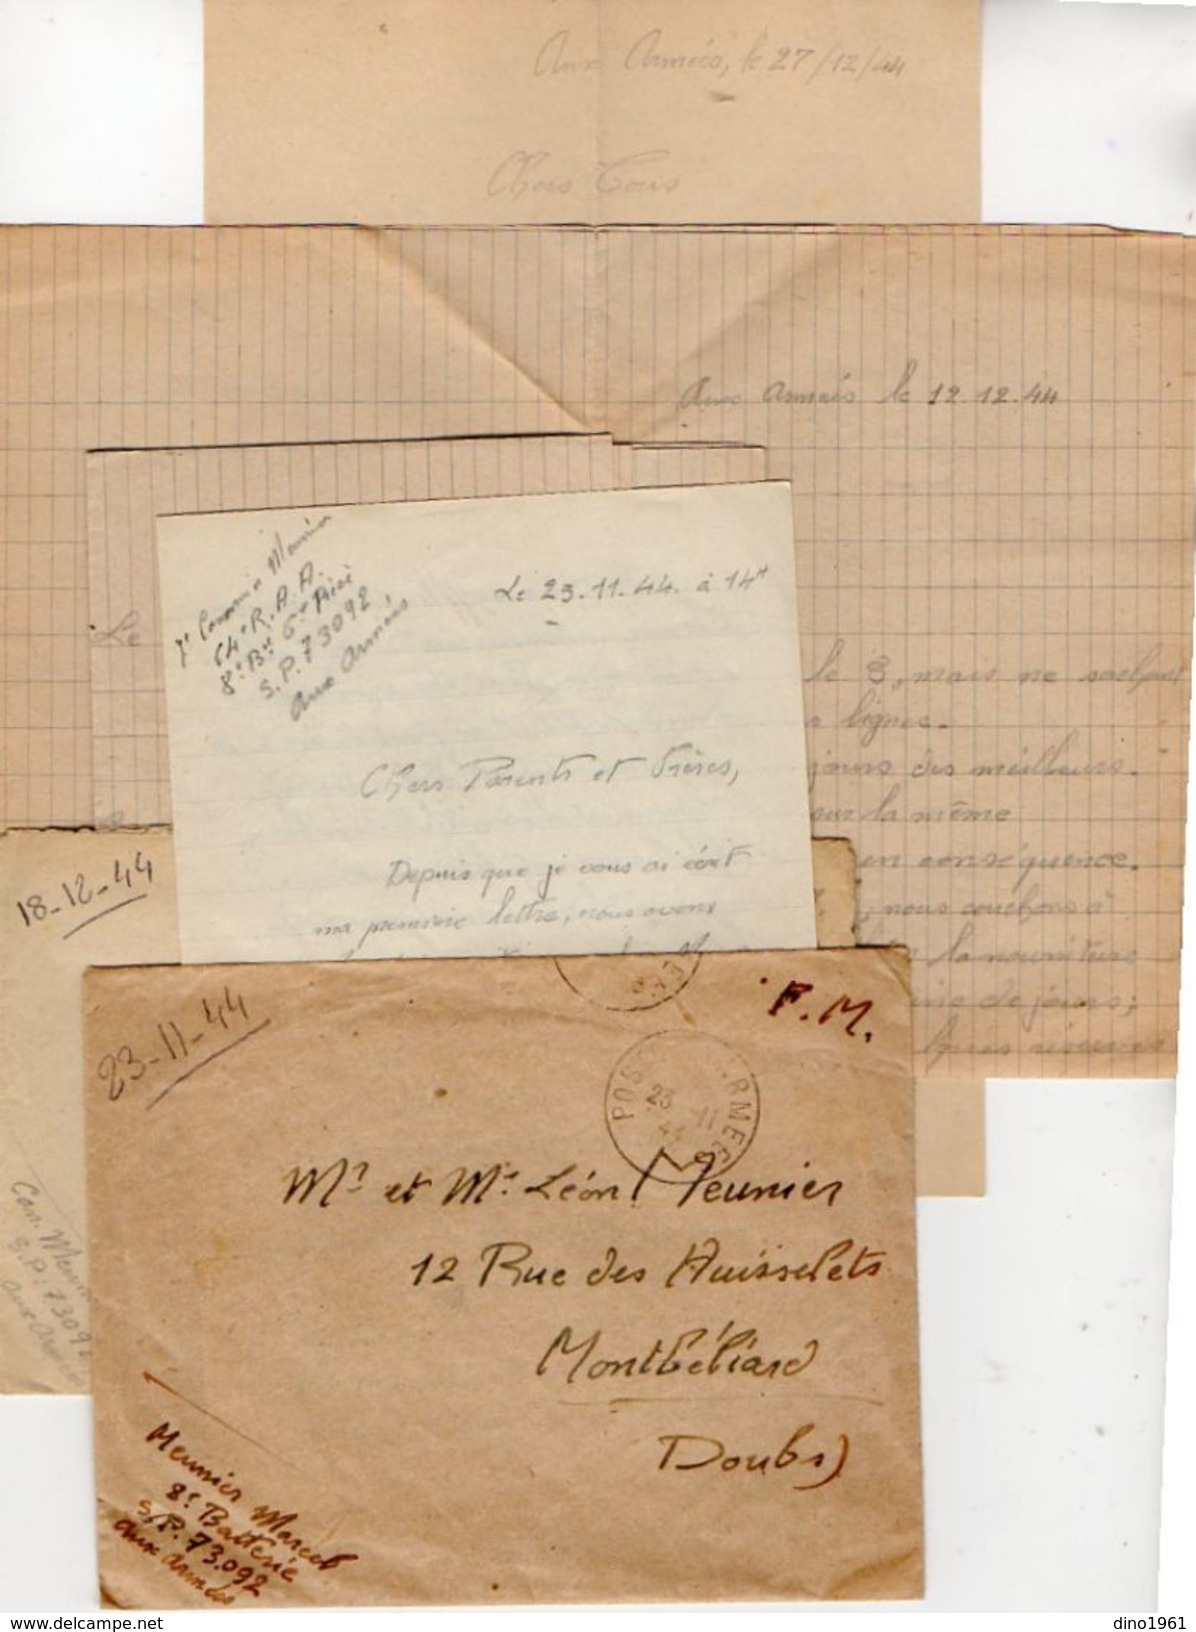 Aux Armées, le 27/12/44
Chers Tous
Aux Armées le 12.12.44
Le
le 8, mais ne sachant
lignes.
jours des meilleurs.
pour la même
en conséquence.
, nous couchons à
la nourriture
de jours;
Après
Meunier
64e R.A.A.
8e Bie 6e Pièce
S.P. 73092
Aux Armées
Le 23.11.44. à 14H
Chers Parents et Frères,
Depuis que je vous ai écrit
ma première lettre, nous avons
18-12-44
Can. Meuni
S.P. 73092
aux Armées
23-11-44
F.M.
POSTE ARMEES
23 11 44
Mr et Me Léon Meunier
12 Rue des Huisselets
Montbéliard
Doubs)
Meunier Marcel
8e Batterie
S.P. 73.092
aux armées
delcampe.net
dino1961